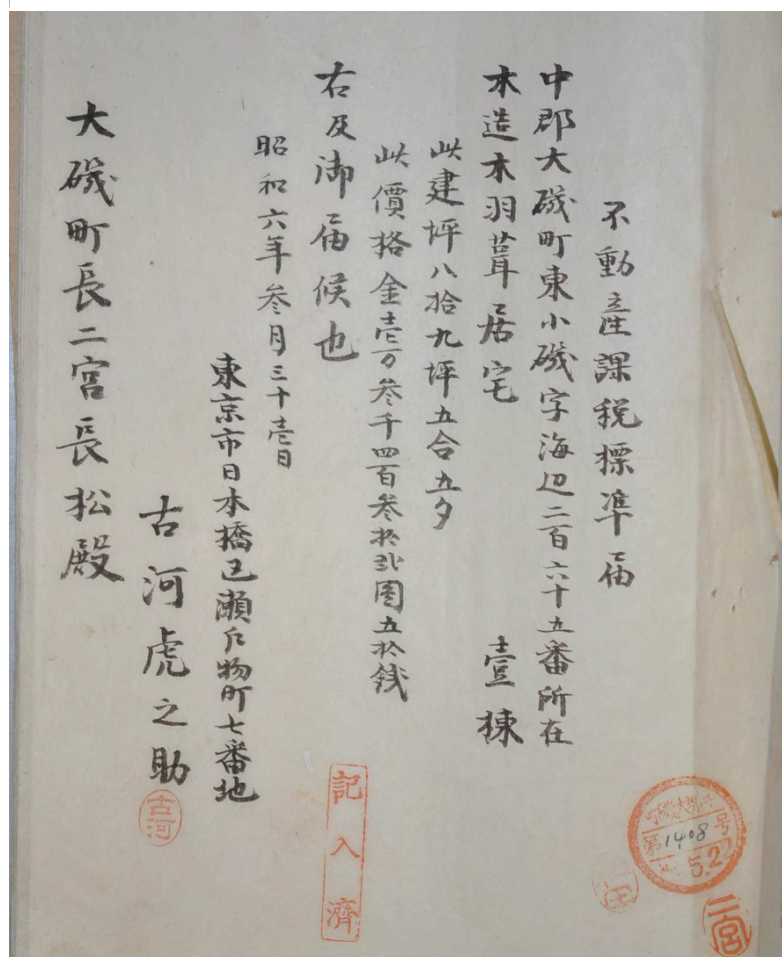 不動産課税標準届
中郡大磯町東小磯字海辺二百六十五番所在
木造木羽葺居宅 壹棟
此建坪八拾九坪五合五夕
此價格金壱万参千四百参拾弐圓五拾銭
右及御届候也
昭和六年参月三十壱日
東京市日本橋区瀬戸物町七番地
古河虎之助
古河
大磯町長二宮長松殿
記入濟
第1408号
5.2
二宮